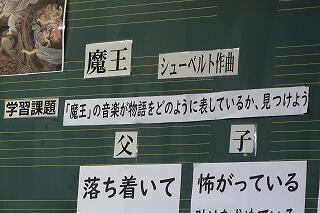 魔王
シューベルト作曲
学習課題
「魔王」の音楽が物語をどのように表しているか、見つけよう
父
子
落ち着いて
怖がっている